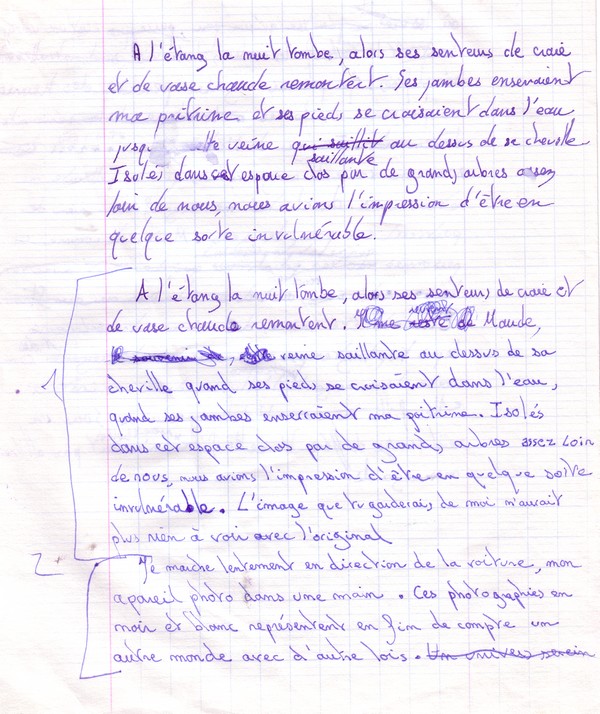 A l'étang la nuit tombe, alors ses senteurs de craie
et de vase chaude remontent. Ses jambes enserraient
ma poitrine et ses pieds se croisaient dans l'eau
jusqu' veine qui saillit au dessus de sa cheville.
saillante
Isolés dans cet espace clos par de grands arbres assez
loin de nous, nous avions l'impression d'être en
quelque sorte invulnérable.
A l'étang la nuit tombe, alors ses senteurs de craie et
de vase chaude remontent. Maude,
veine saillante au dessus de sa
cheville quand ses pieds se croisaient dans l'eau,
quand ses jambes enserraient ma poitrine. Isolés
dans cet espace clos par de grands arbres assez loin
de nous, nous avions l'impression d'être en quelque sorte
invulnérable. L'image que tu garderais de moi n'aurait
plus rien à voir avec l'original
1
2
Je marche lentement en direction de la voiture, mon
appareil photo dans une main. Ces photographies en
noir et blanc représentent en fin de compte un
autre monde avec d'autre lois. Un univers serein